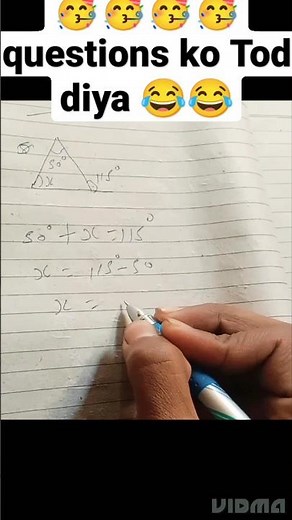 🥳🥳🥳🥳
questions ko Tod
diya 😂😂
50°
x
115°
50° + x = 115°
x = 115° - 50
x =
VIDMA